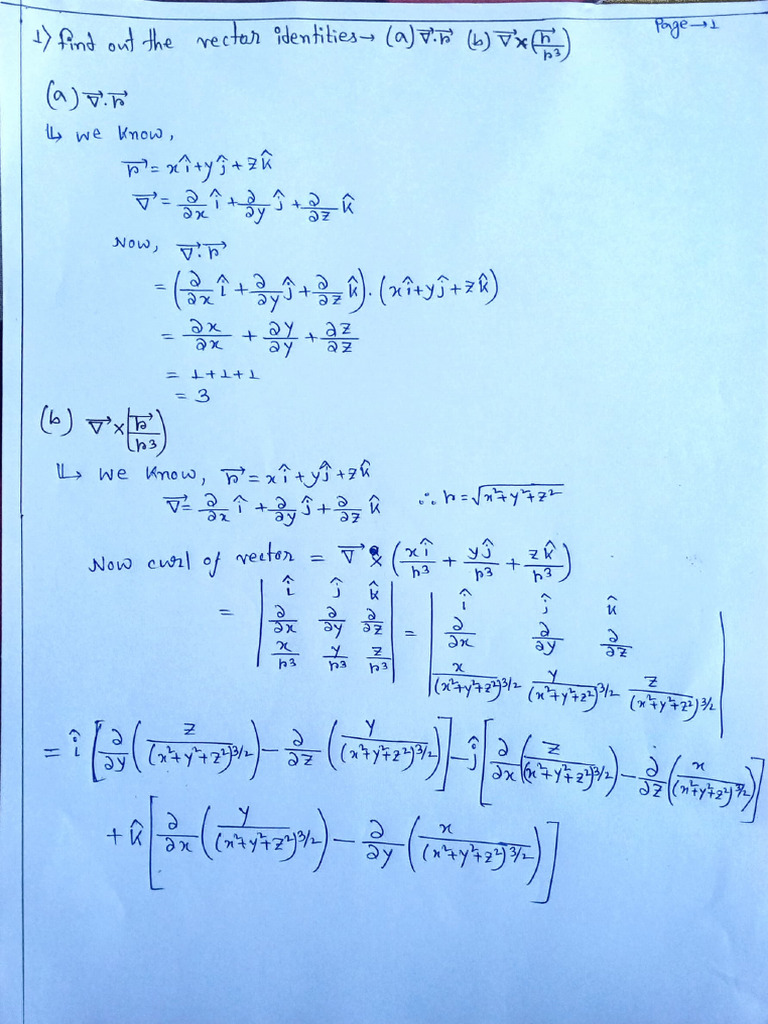 Page→1
1) find out the vector identities→ (a) ∇⃗.r⃗ (b) ∇⃗×(r⃗/r³)
(a) ∇⃗.r⃗
↳ we know,
r⃗ = xî+yĵ+zk̂
∇⃗ = ∂/∂x î + ∂/∂y ĵ + ∂/∂z k̂
Now, ∇⃗.r⃗
= (∂/∂x î + ∂/∂y ĵ + ∂/∂z k̂).(xî+yĵ+zk̂)
= ∂x/∂x + ∂y/∂y + ∂z/∂z
= 1+1+1
= 3
(b) ∇⃗×(r⃗/r³)
↳ we know, r⃗ = xî+yĵ+zk̂
∇⃗ = ∂/∂x î + ∂/∂y ĵ + ∂/∂z k̂ ∴ r = √x²+y²+z²
Now curl of vector = ∇⃗ × (xî/r³ + yĵ/r³ + zk̂/r³)
= | î ĵ k̂ | = | î ĵ k̂ |
| ∂/∂x ∂/∂y ∂/∂z | | ∂/∂x ∂/∂y ∂/∂z |
| x/r³ y/r³ z/r³ | | x/(x²+y²+z²)3/2 y/(x²+y²+z²)3/2 z/(x²+y²+z²)3/2 |
= î [∂/∂y (z/(x²+y²+z²)3/2) − ∂/∂z (y/(x²+y²+z²)3/2)] − ĵ [∂/∂x (z/(x²+y²+z²)3/2) − ∂/∂z (x/(x²+y²+z²)3/2)]
+ k̂ [∂/∂x (y/(x²+y²+z²)3/2) − ∂/∂y (x/(x²+y²+z²)3/2)]